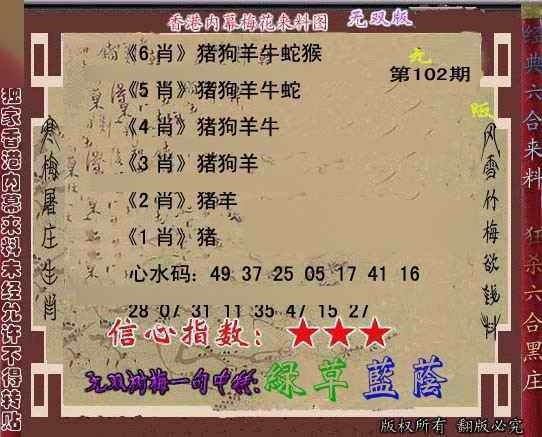 香港内幕梅花来料图 无双版
《6 肖》猪狗羊牛蛇猴
第102期
《5 肖》猪狗羊牛蛇
《4 肖》猪狗羊牛
《3 肖》猪狗羊
《2 肖》猪羊
《1 肖》猪
心水码：49 37 25 05 17 41 16
28 07 31 11 35 47 15 27
信心指数：★★★
无双浏梅一句中特:綠草藍蔭
版权所有 翻版必究
独家香港内幕来料未经允许不得转贴
寒梅屠庄生肖
无
版
风雪竹梅欲钱料
经典六合来料
狂杀六合黑庄